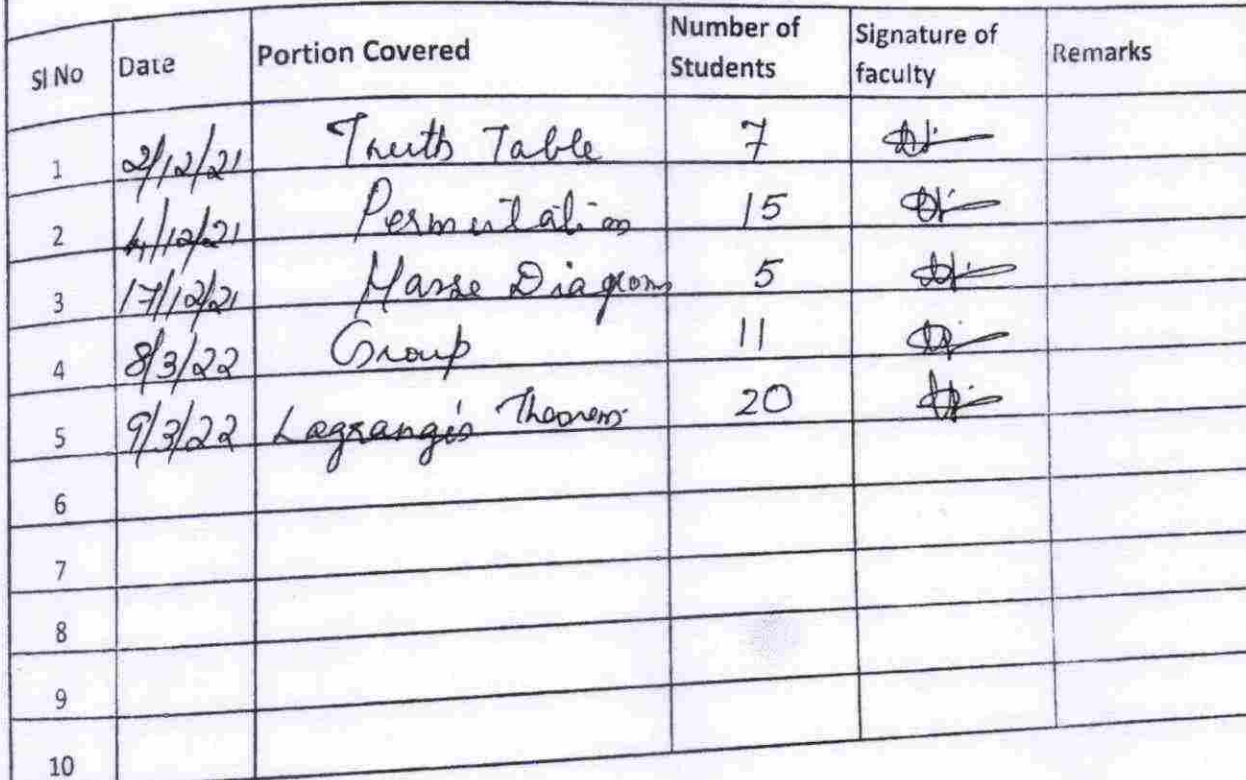 Sl No Date Portion Covered Number of Students Signature of faculty Remarks
1 2/12/21 Truth Table 7
2 4/12/21 Permutation 15
3 17/12/21 Hasse Diagram 5
4 8/3/22 Group 11
5 9/3/22 Lagrange's Theorem 20
6
7
8
9
10